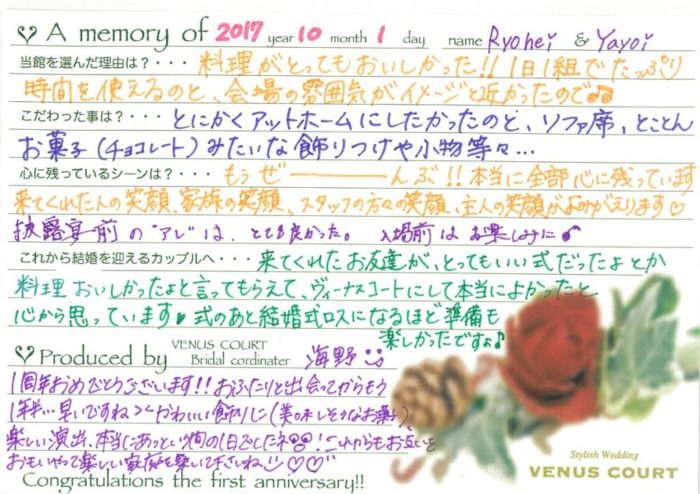 A memory of 2017 year 10 month 1 day name Ryohei & Yayoi
当館を選んだ理由は？・・・料理がとってもおいしかった!! 1日1組でたっぷり
時間を使えるのと、会場の雰囲気がイメージと近かったので♫
こだわった事は？・・・とにかくアットホームにしたかったのと、ソファ席、とことん
お菓子(チョコレート)みたいな飾りつけや小物等々…
心に残っているシーンは？・・・もうぜーーーんぶ!!本当に全部心に残っています
来てくれた人の笑顔、家族の笑顔、スタッフの方々の笑顔、主人の笑顔がよみがえります♡
披露宴前の"アレ"は、とても良かった。入場前はお楽しみに♪
これから結婚を迎えるカップルへ・・・来てくれたお友達が、とってもいい式だったよとか
料理おいしかったよと言ってもらえて、ヴィーナスコートにして本当によかったと
心から思っています♥式のあと結婚式ロスになるほど準備も
楽しかったですよ♪
Produced by VENUS COURT Bridal cordinater 海野
1周年おめでとうございます!!おふたりと出会ってからもう
1年半…早いですね><かわいい飾りに(美味しそうなお菓子)
楽しい演出、本当にあっという間の1日でしたネ!これからもお互いを
おもいやって楽しい家庭を築いて下さいね♡♡
Congratulations the first anniversary!!
Stylish Wedding
VENUS COURT